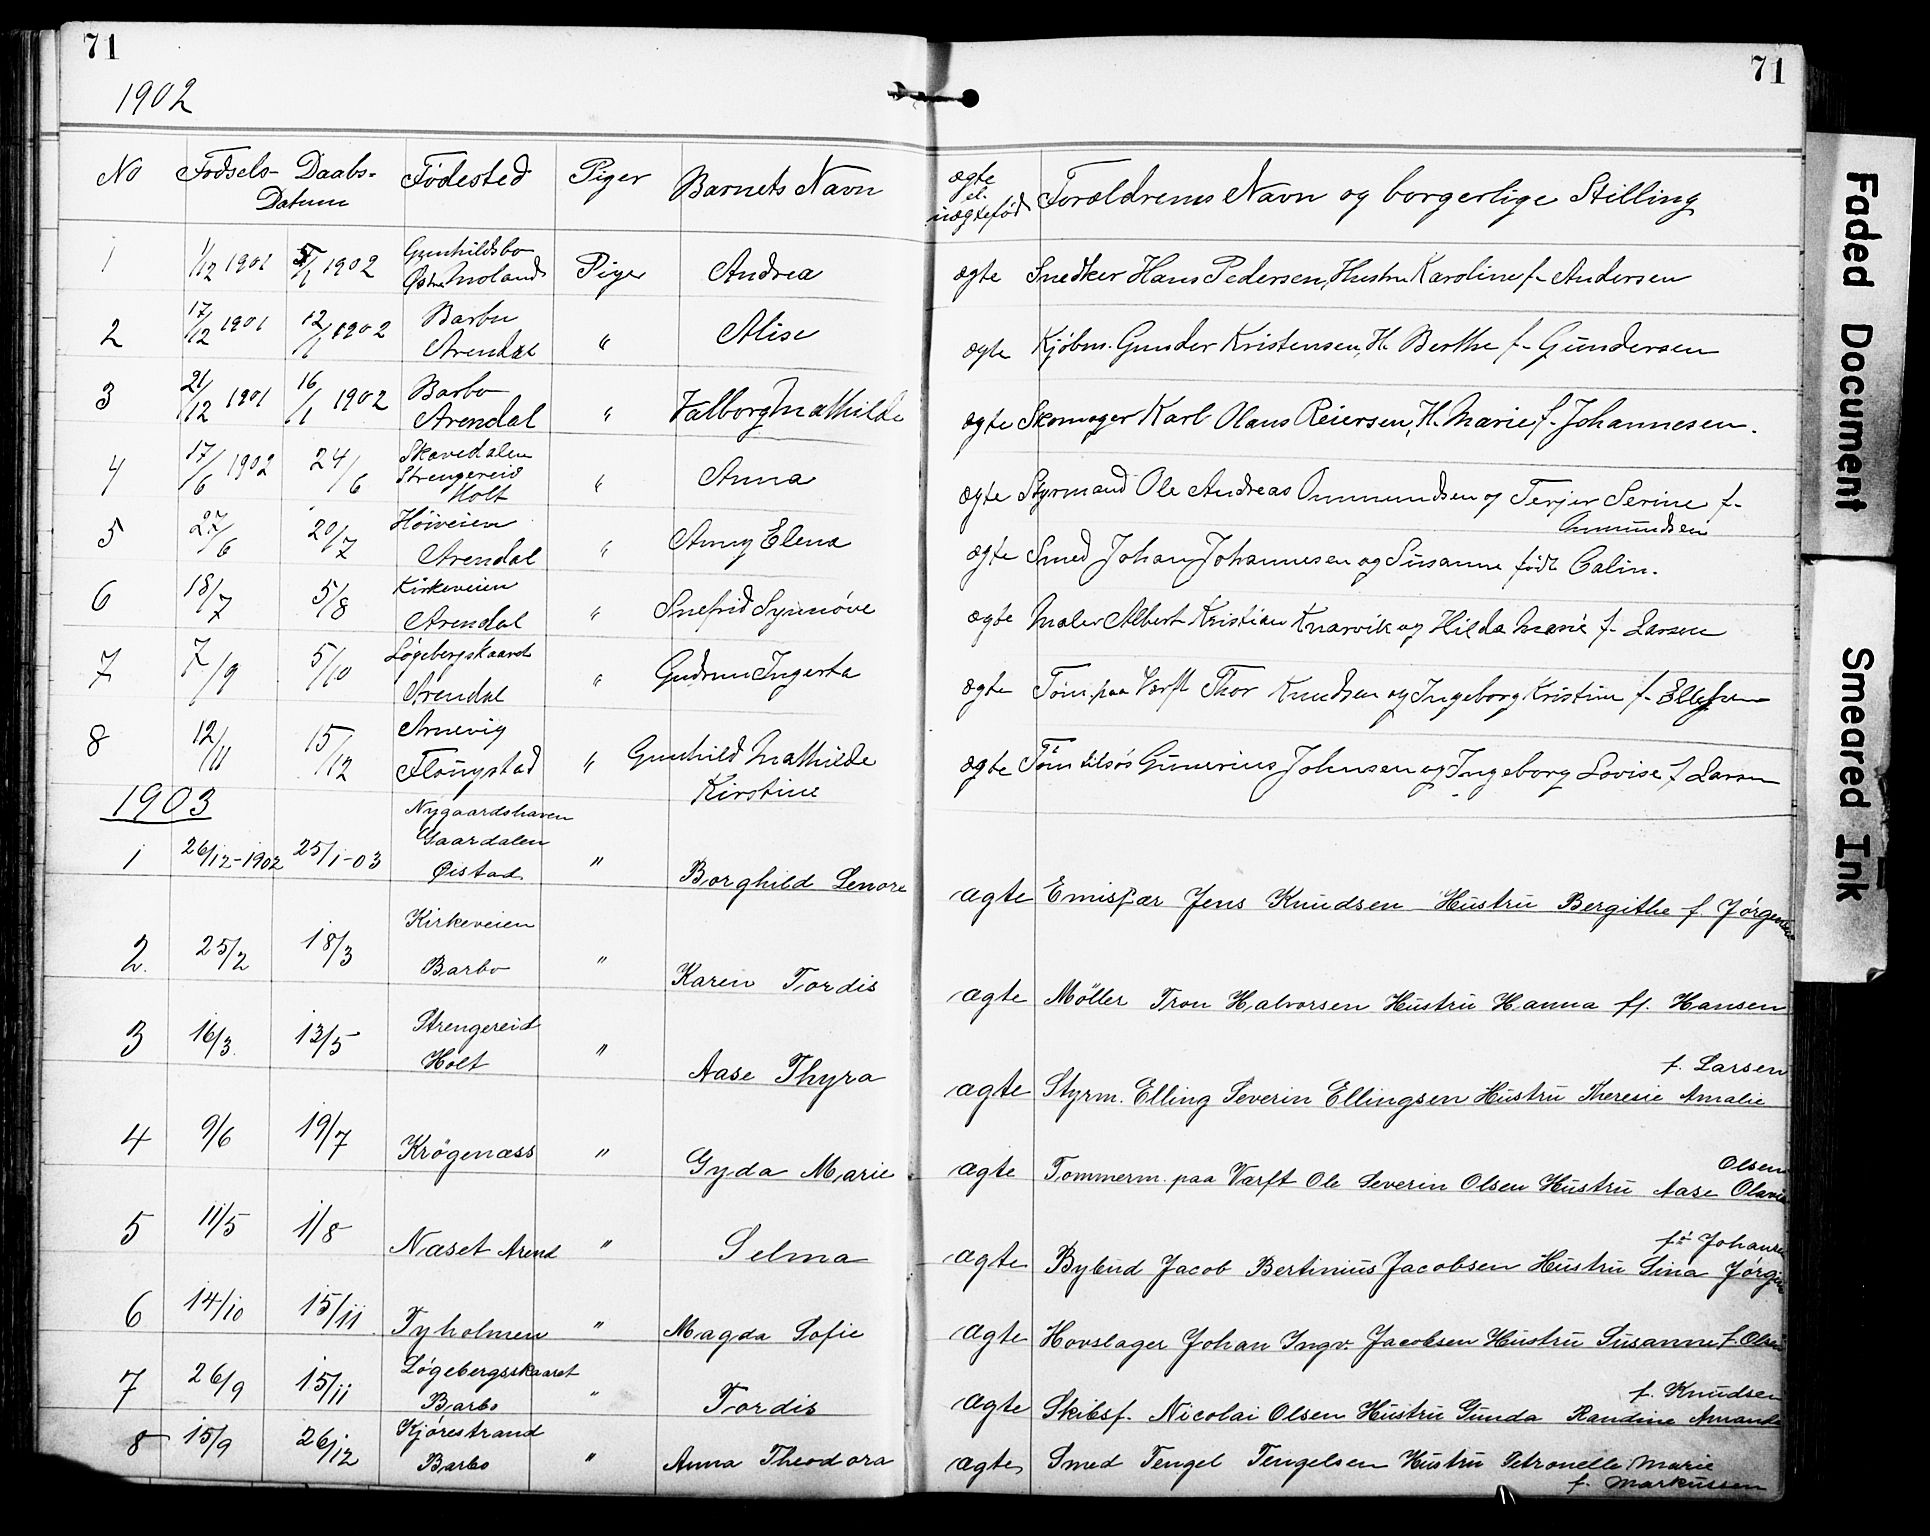 71
71
1902
No Fødsels- Daabs- Datum Fødested Piger Barnets Navn ægte el. uægtefød Forældrenes Navn og borgerlige Stilling
1 1/12 1901 5/1 1902 Gunhildsbo Østre Moland Piger Andrea ægte Snedker Hans Pedersen, Hustru Karoline f. Andersen
2 17/12 1901 12/1 1902 Barbu Arendal " Alise ægte Kjøbm. Gunder Kristensen, H. Berthe f. Gundersen
3 21/12 1901 16/1 1902 Barbo Arendal " Valborg Mathilde ægte Skomager Karl Olaus Reiersen, H. Marie f. Johannesen.
4 17/6 1902 24/6 Skavedalen Strengereid Holt " Anna ægte Styrmand Ole Andreas Ommundsen og Terjer Serine f. Ommundsen
5 27/6 20/7 Høiveien Arendal " Anny Elena ægte Smed Johan Johannesen og Susanne født Calin.
6 18/7 5/8 Kirkeveien Arendal " Snefrid Synnøve ægte Maler Albert Kristian Knarvik og Hilda Marie f. Larsen
7 7/9 5/10 Løgebergskaaret Arendal " Gudrun Ingerta ægte Tøm. paa Værft Thor Knudsen og Ingeborg Kristine f. Ellefsen
8 12/11 15/12 Arnevig Flougstad " Gunhild Mathilde Kirstine ægte Tøm tilsøs Gunerius Johnsen og Ingeborg Lovise f. Larsen
1903
1 26/12-1902 25/1-03 Nygaardshaven Gaardalen Øistad " Borghild Lenore ægte Emisær Jens Knudsen Hustru Bergithe f. Jørgensen
2. 25/2 18/3 Kirkeveien Barbo " Karen Tordis ægte Møller Tron Halvorsen Hustru Hanna ff. Hansen
3 16/3 13/5 Strengereid Holt " Aase Thyra ægte Styrm. Elling Severin Ellingsen Hustru Theresie Amalie f. Larsen
4 9/6 19/7 Krøgenæss " Gyda Marie ægte Tømmerm. paa Værft Ole Severin Olsen Hustru Aase Olavia Olsen
5 11/5 1/8 Næset Arend " Selma ægte Bybud Jacob Bertinius Jacobsen Hustru Sina Jørgine f. Johansen
6 14/10 15/11 Tyholmen " Magda Sofie ægte Hovslager Johan Ingv. Jacobsen Hustru Susanne f. Olsen
7 26/9 15/11 Løgebergsskaaret Barbo " Tordis ægte Skibsf. Nicolai Olsen Hustru Gunda Randine Amanda f. Knudsen
8 15/9 26/12 Kjørestrand Barbo " Anna Theodora ægte Smed Tengel Tengelsen Hustru Petronelle Marie f. Markussen
Faded Document
Smeared Ink